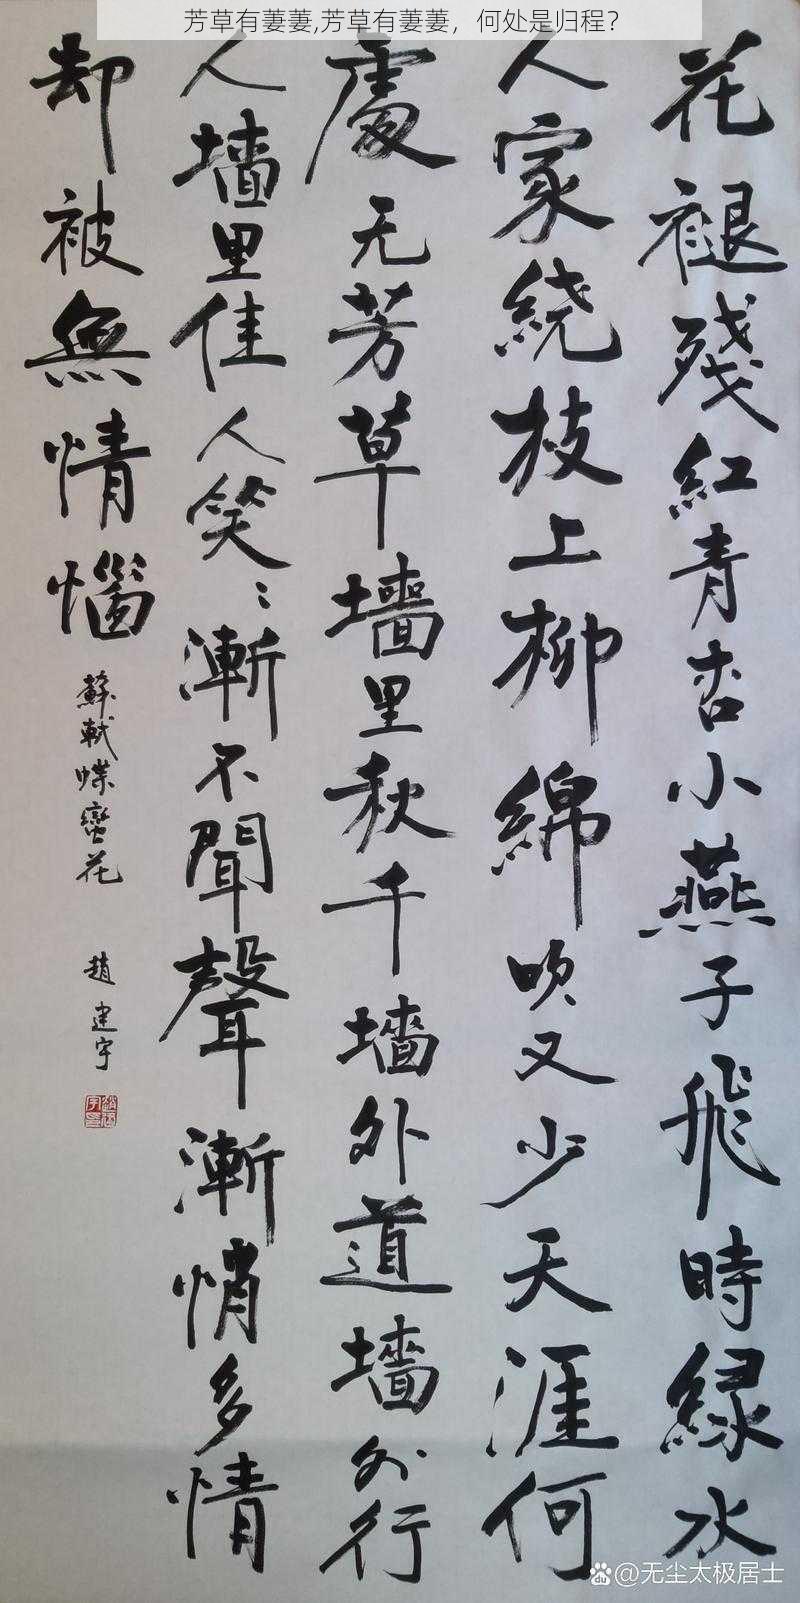 芳草有萋萋,芳草有萋萋，何处是归程？
花褪残紅青杏小燕子飛時緑水
人家绕枝上柳綿吹又少天涯何
處无芳草墙里秋千墙外道墙外行
人墙里佳人笑〻漸不聞聲漸悄多情
却被無情惱
蘇軾蝶蠻花
趙建宇
@无尘太极居士